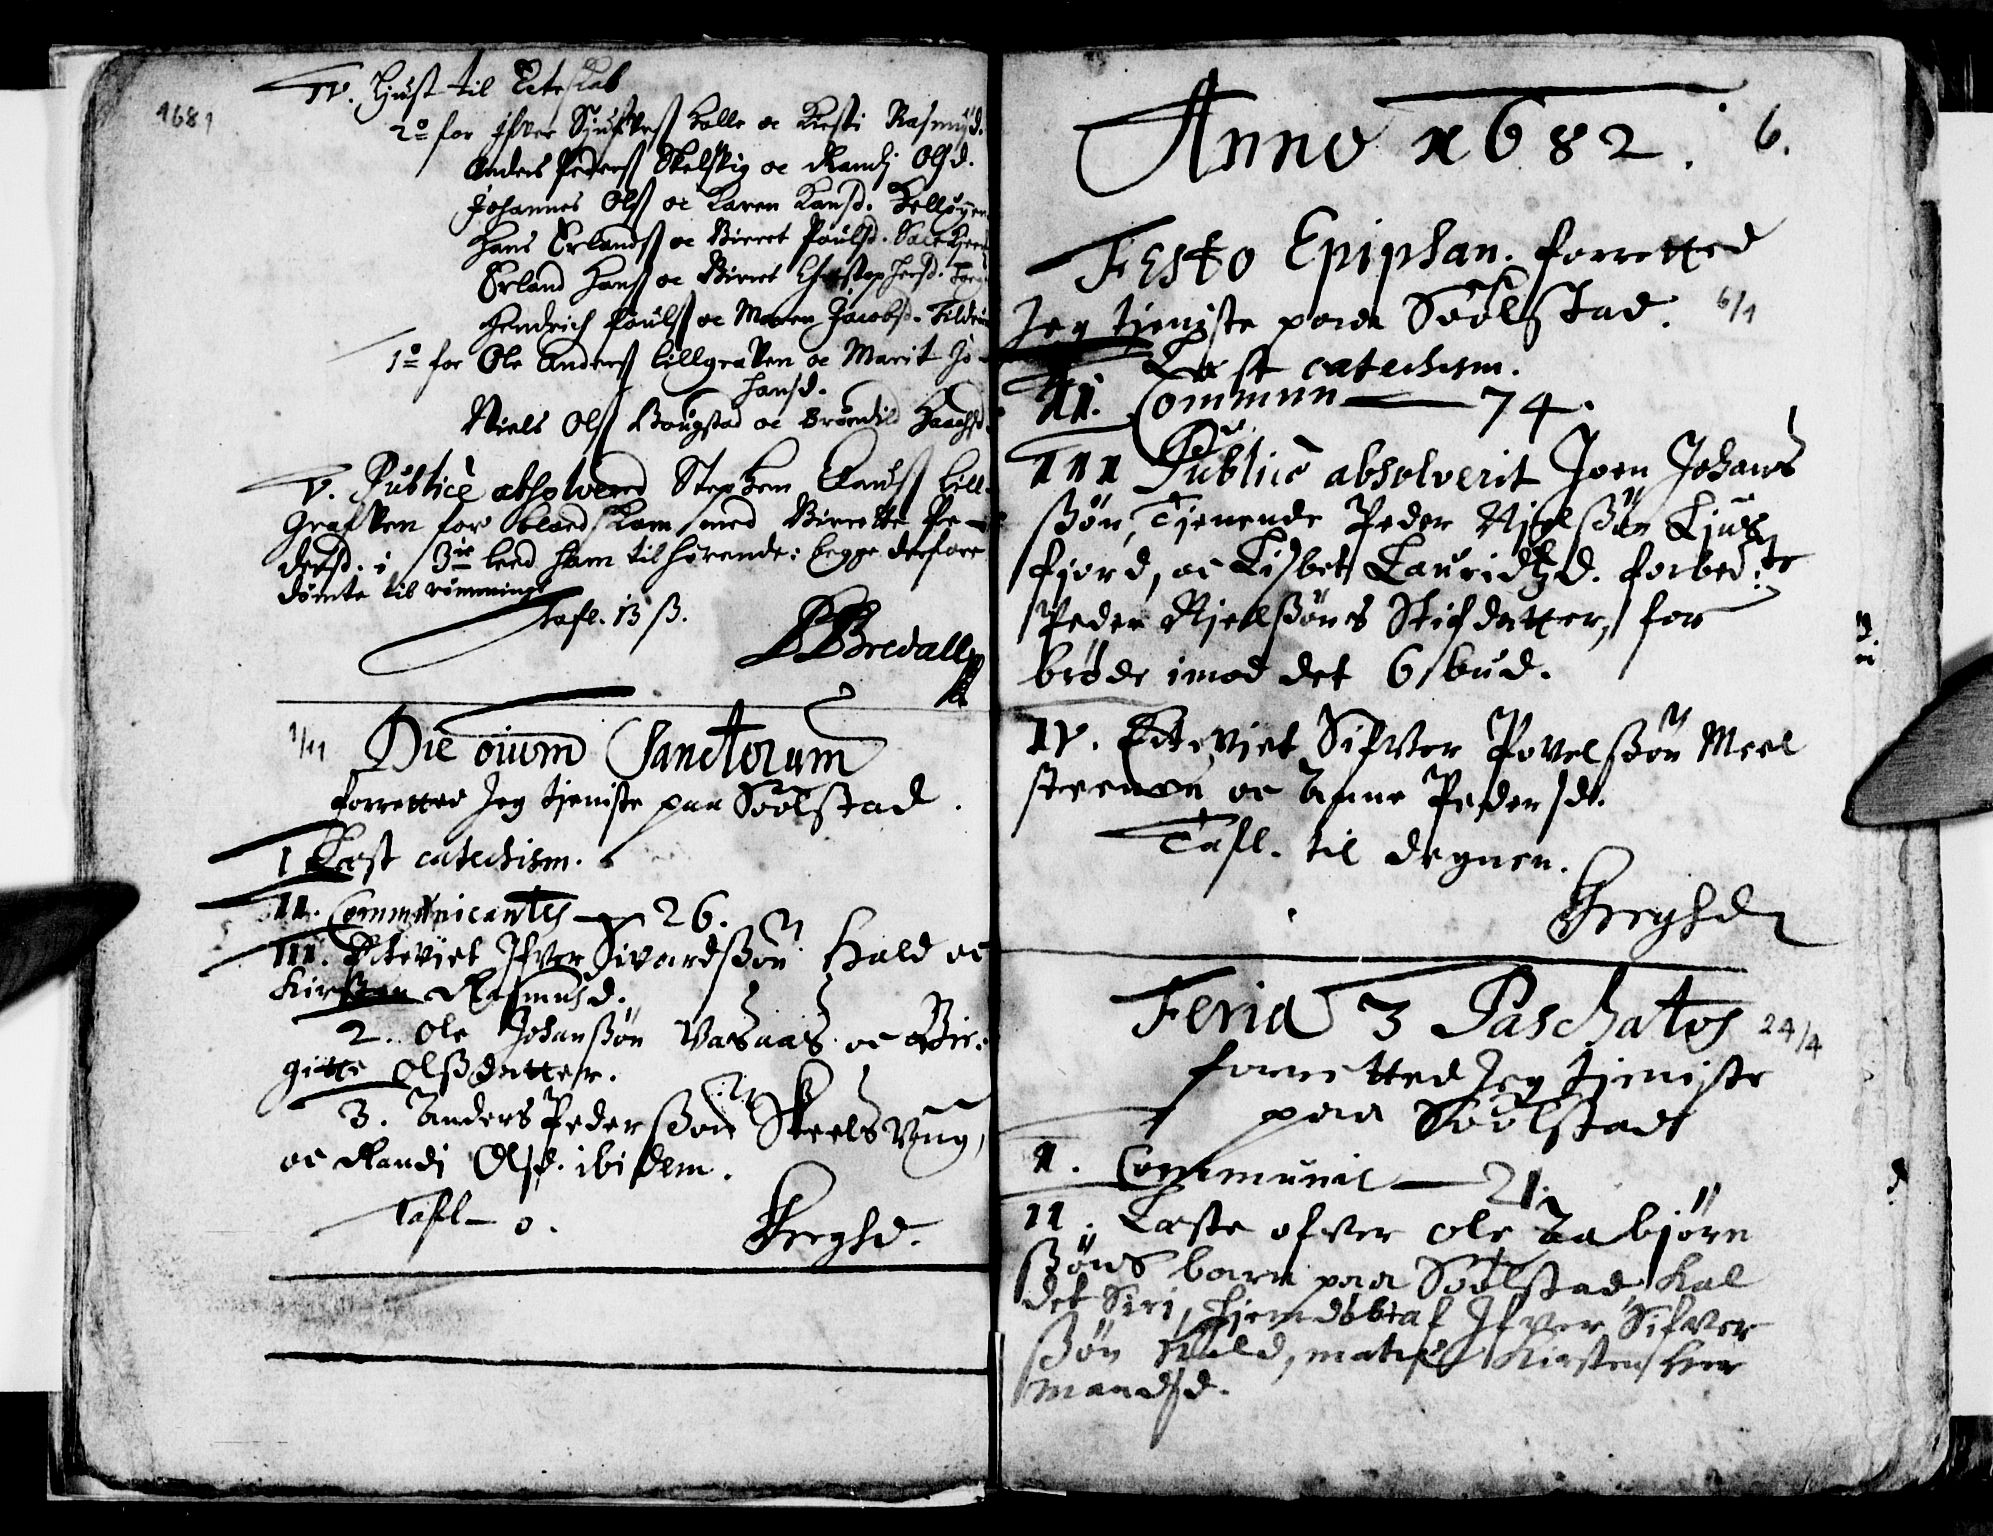 1681
IV. Liust til Ecteskab
2o for Ifver Sjufvers Halle oc Kirsti Rasmusd.
Anders Peders Skelsvig oc Randj Olsd.
Johannes Ols oc Karen Hansd.
Hans Erlands oc Birret Poulsd.
Erland Hans oc Birret Christophersd.
Hendrich Pouls oc Maren Jacobsd.
1o for Ole Anders Lillgraven oc Marit Jo-
hansd.
Niels Ols Bougstad oc Brønild
V. Publicè absolvered Stephen Pauls Lill-
Grafven for blodskam med Birrette Pe-
dersd. i 3ie leed ham tilhørende: begge derfore
dømte til rømming
Tafl. 13 ß.
Bredall
1/11
Die oium Sanctorum
forretted Jeg tjeniste paa Soolstad.
I Læst catechism.
II. Communicantes — 26.
III. Ecteviet Ifver Sivardsøn Hald oc
Kirsten Rasmusd.
2. Ole Johansøn Vasaas oc Bir-
gitte Olsdatter.
3. Anders Pedersøn Skeelsvug,
oc Randj Olsd. ibidem.
Tafl — 0.
Berghd.
Anno 1682.
6.
Festo Epiphan. forretted
Jeg tjeniste paa Soolstad.
6/1
Læst catechism.
II. Commun — 74.
III Publicè absolverit Joen Johans
søn, Tjenende Peder Njelsøn Ljus
fjord, oc Lisbet Lauridtzd. forbed.te
Peder Njelsøns Stifdatter, for
brøde imod det 6 bud.
IV. Ecteviet Sifver Povelsøn Meel
steenen oc Anne Pedersd.
Tafl. til degnen.
Berghd
Feria 3 Paschatos
24/4
forretted Jeg tjeniste
paa Soolstad
I. Communic — 21.
II. Læste ofver Ole Aabjørn
søns barn paa Soolstad, kal
det Siri, hjemdøbt af Ifver Sifver
søn Hald, mater Kirsten Her
mandsd.